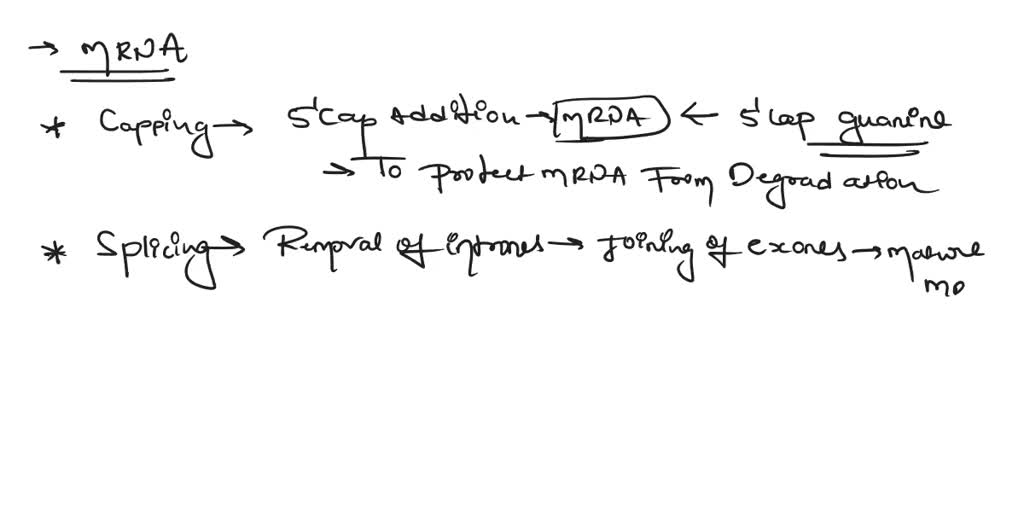 → mRNA
* Capping → 5' Cap Addition → mRNA ← 5' Cap guanine
→ To Protect mRNA From Degradation
* Splicing → Removal of intrones → Joining of exones → mature
mo